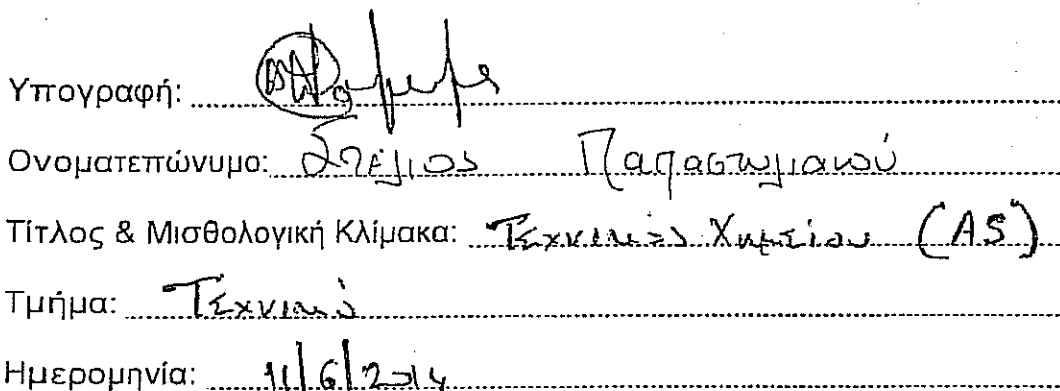 Υπογραφή:
Ονοματεπώνυμο: Στέλιος
Τίτλος & Μισθολογική Κλίμακα: Τεχνικός Χημείου (A5)
Τμήμα: Τεχνικό
Ημερομηνία: 11/6/2014